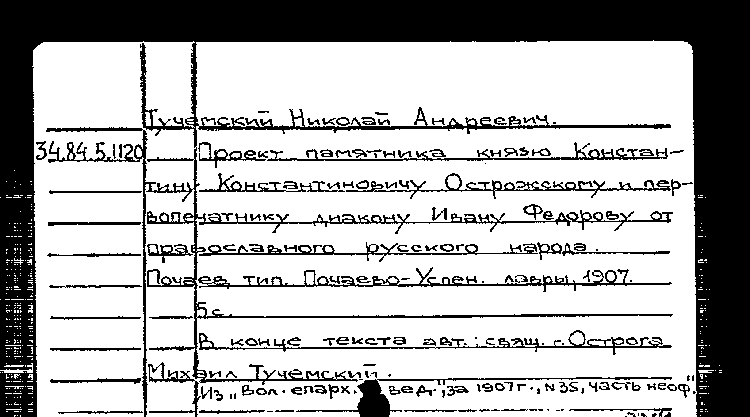 Тучемский, Николай Андреевич.
34.84.5.1120 Проект памятника князю Констан-
тину Константиновичу Острожскому и пер-
вопечатнику диакону Ивану Федорову от
православного русского народа.
Почаев, тип. Почаево-Успен. лавры, 1907.
5 с.
В конце текста авт.: свящ. г. Острога
Михаил Тучемский.
Из „Вол. епарх. вед.", за 1907 г., N 35, часть неоф.